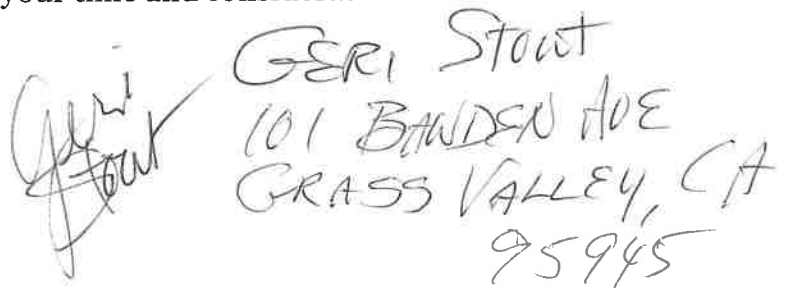 your time and
Geri Stout
GERI Stout
101 BAWDEN AVE
GRASS VALLEY, CA
95945